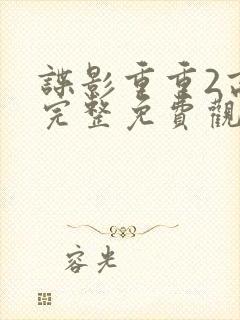 諜影重重2高
完整免費觀
容光